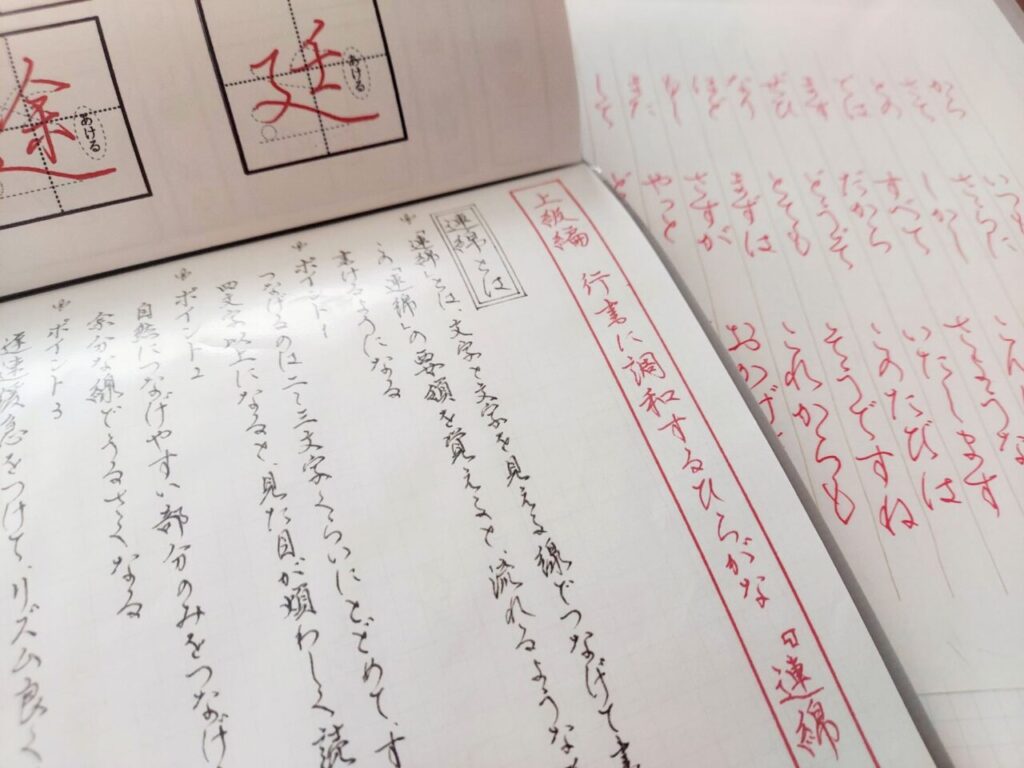 上級編 行書に調和するひらがな 連綿
連綿とは
「連綿」とは、文字と文字を見える線でつなげて書
この「連綿」の要領を覚えると、流れるような
書けるようになる
ポイント1
つなげるのは二~三文字くらいにとどめて、す
四文字以上になると、見た目が煩わしく読
ポイント2
自然につなげやすい部分のみをつなげ
余分な線がうるさくなる
ポイント3
遅速緩急をつけて、リズム良く
廷
あける
途
あける
から
さて
との
では
ます
ぜひ
なう
ほど
もし
また
して
いつも
さらに
しかし
すべて
だから
どうぞ
とても
まずは
さすが
やっと
さような
いたします
このたびは
そうですね
これからも
おかげ